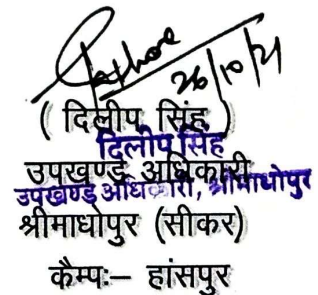 Rathore
26/10/21
( दिलीप सिंह )
दिलीप सिंह
उपखण्ड अधिकारी
उपखण्ड अधिकारी, श्रीमाधोपुर
श्रीमाधोपुर (सीकर)
कैम्पः– हांसपुर